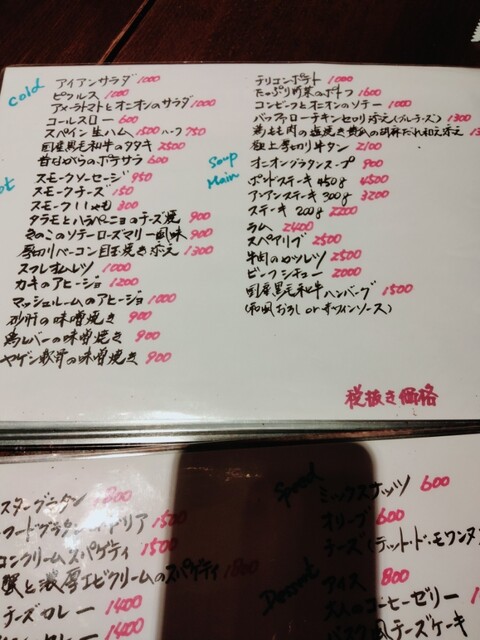 Cold
アイアンサラダ 1000
ピクルス 1000
アメーラトマトとオニオンのサラダ 1000
コールスロー 600
スペイン生ハム 1500 ハーフ 750
国産黒毛和牛のタタキ 2500
昔ながらのポテサラ 600
スモークソーセージ 950
スモークチーズ 150
スモークししゃも 300
タラモとハラペーニョのチーズ焼 900
きのこのソテーローズマリー風味 900
厚切りベーコン目玉焼き添え 1300
スフレオムレツ 1000
カキのアヒージョ 1200
マッシュルームのアヒージョ 1000
砂肝の味噌焼き 900
鶏レバーの味噌焼き 900
ヤゲン軟骨の味噌焼き 900
テリコンポテト 1000
たっぷり野菜のポトフ 1600
コンビーフとオニオンのソテー 1000
バッファローチキンセロリ添え(ブルーチーズ) 1300
極上厚切り牛タン 2100
Soup
オニオングラタンスープ 900
Main
ポンドステーキ 450g 4500
アイアンステーキ 300g 3200
ステーキ 200g 2200
ラム 2400
スペアリブ 2500
牛肉のカツレツ 2500
ビーフシチュー 2000
国産黒毛和牛ハンバーグ 1500
(和風おろし or 赤ワインソース)
税抜き価格
スターグラタン 1800
1500
コンクリームスパゲティ 1500
蟹と濃厚エビクリームのスパゲティ 1800
チーズカレー 1400
カレー 1400
ミックスナッツ 600
オリーブ 600
チーズ(テット・ド・モワンヌ
Dessert
アイス 800
大人のコーヒーゼリー
風チーズケーキ